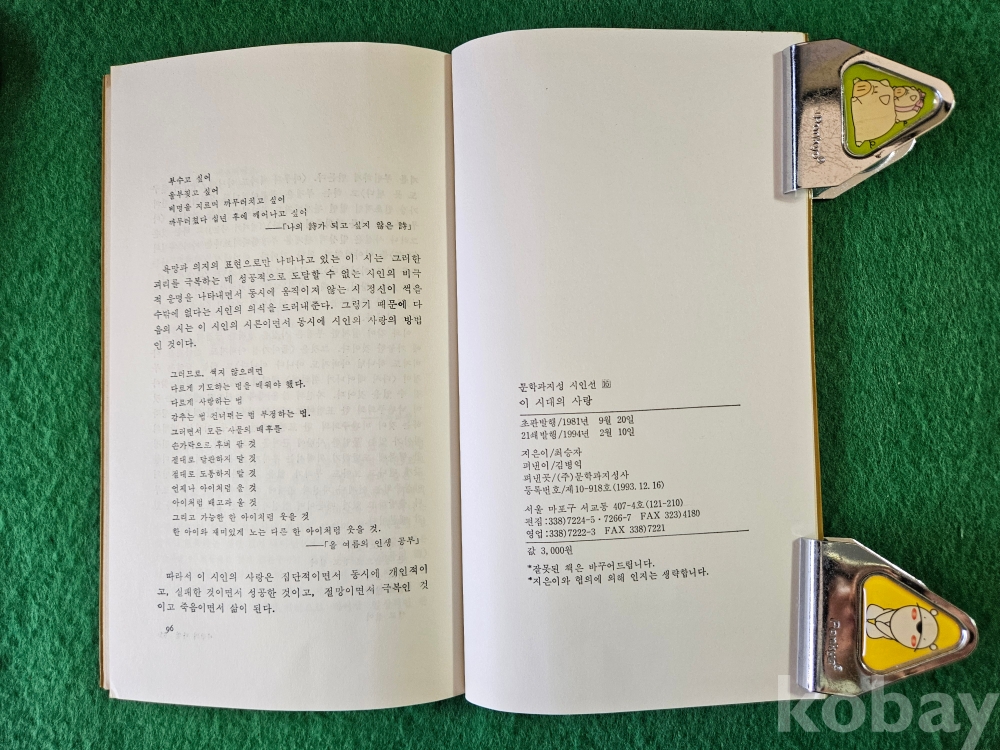 부수고 싶어
울부짖고 싶어
비명을 지르며 까무러치고 싶어
까무러쳤다 십년 후에 깨어나고 싶어
——「나의 詩가 되고 싶지 않은 詩」
욕망과 의지의 표현으로만 나타나고 있는 이 시는 그러한
괴리를 극복하는 데 성공적으로 도달할 수 없는 시인의 비극
적 운명을 나타내면서 동시에 움직이지 않는 시 정신이 썩을
수밖에 없다는 시인의 의식을 드러내준다. 그렇기 때문에 다
음의 시는 이 시인의 시론이면서 동시에 시인의 사랑의 방법
인 것이다.
그러므로, 썩지 않으려면
다르게 기도하는 법을 배워야 했다.
다르게 사랑하는 법
감추는 법 건너뛰는 법 부정하는 법.
그러면서 모든 사물의 배후를
손가락으로 후벼 팔 것
절대로 달관하지 말 것
절대로 도통하지 말 것
언제나 아이처럼 울 것
아이처럼 배고파 울 것
그리고 가능한 한 아이처럼 웃을 것
한 아이와 재미있게 노는 다른 한 아이처럼 웃을 것.
——「올 여름의 인생 공부」
따라서 이 시인의 사랑은 집단적이면서 동시에 개인적이
고, 실패한 것이면서 성공한 것이고, 절망이면서 극복인 것
이고 죽음이면서 삶이 된다.
96
문학과지성 시인선 16
이 시대의 사랑
초판발행/1981년 9월 20일
21쇄발행/1994년 2월 10일
지은이/최승자
펴낸이/김병익
펴낸곳/(주)문학과지성사
등록번호/제10-918호(1993. 12. 16)
서울 마포구 서교동 407-4호(121-210)
편집:338)7224-5·7266-7 FAX 323)4180
영업:338)7222-3 FAX 338)7221
값 3,000원
*잘못된 책은 바꾸어드립니다.
*지은이와 협의에 의해 인지는 생략합니다.
kobay